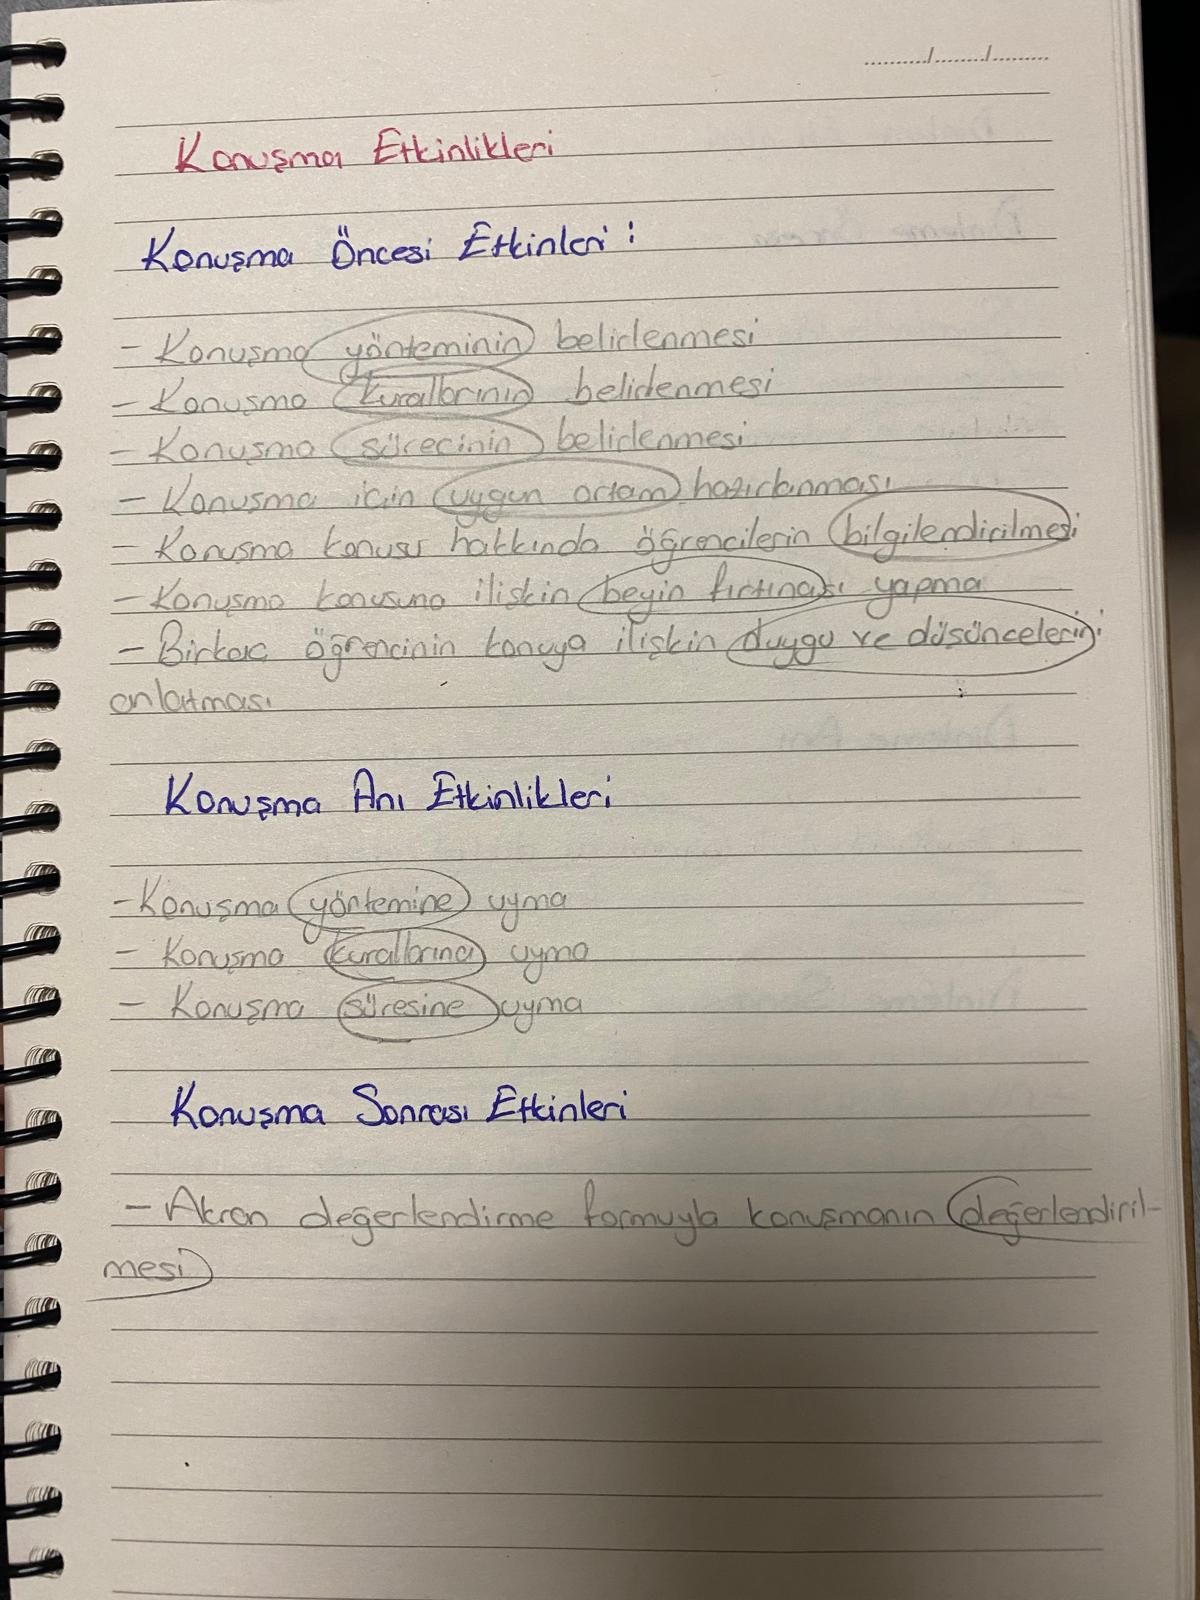 ........../........./.........
Konuşma Etkinlikleri
Konuşma Öncesi Etkinleri :
- Konuşma yönteminin belirlenmesi
- Konuşma kurallarının belirlenmesi
- Konuşma sürecinin belirlenmesi
- Konuşma için uygun ortam hazırlanması
- Konuşma konusu hakkında öğrencilerin bilgilendirilmesi
- Konuşma konusuna ilişkin beyin fırtınası yapma
- Birkaç öğrencinin konuya ilişkin duygu ve düşüncelerini
anlatması
Konuşma Anı Etkinlikleri
- Konuşma yöntemine uyma
- Konuşma kurallarına uyma
- Konuşma süresine uyma
Konuşma Sonrası Etkinleri
- Akran değerlendirme formuyla konuşmanın değerlendiril-
mesi